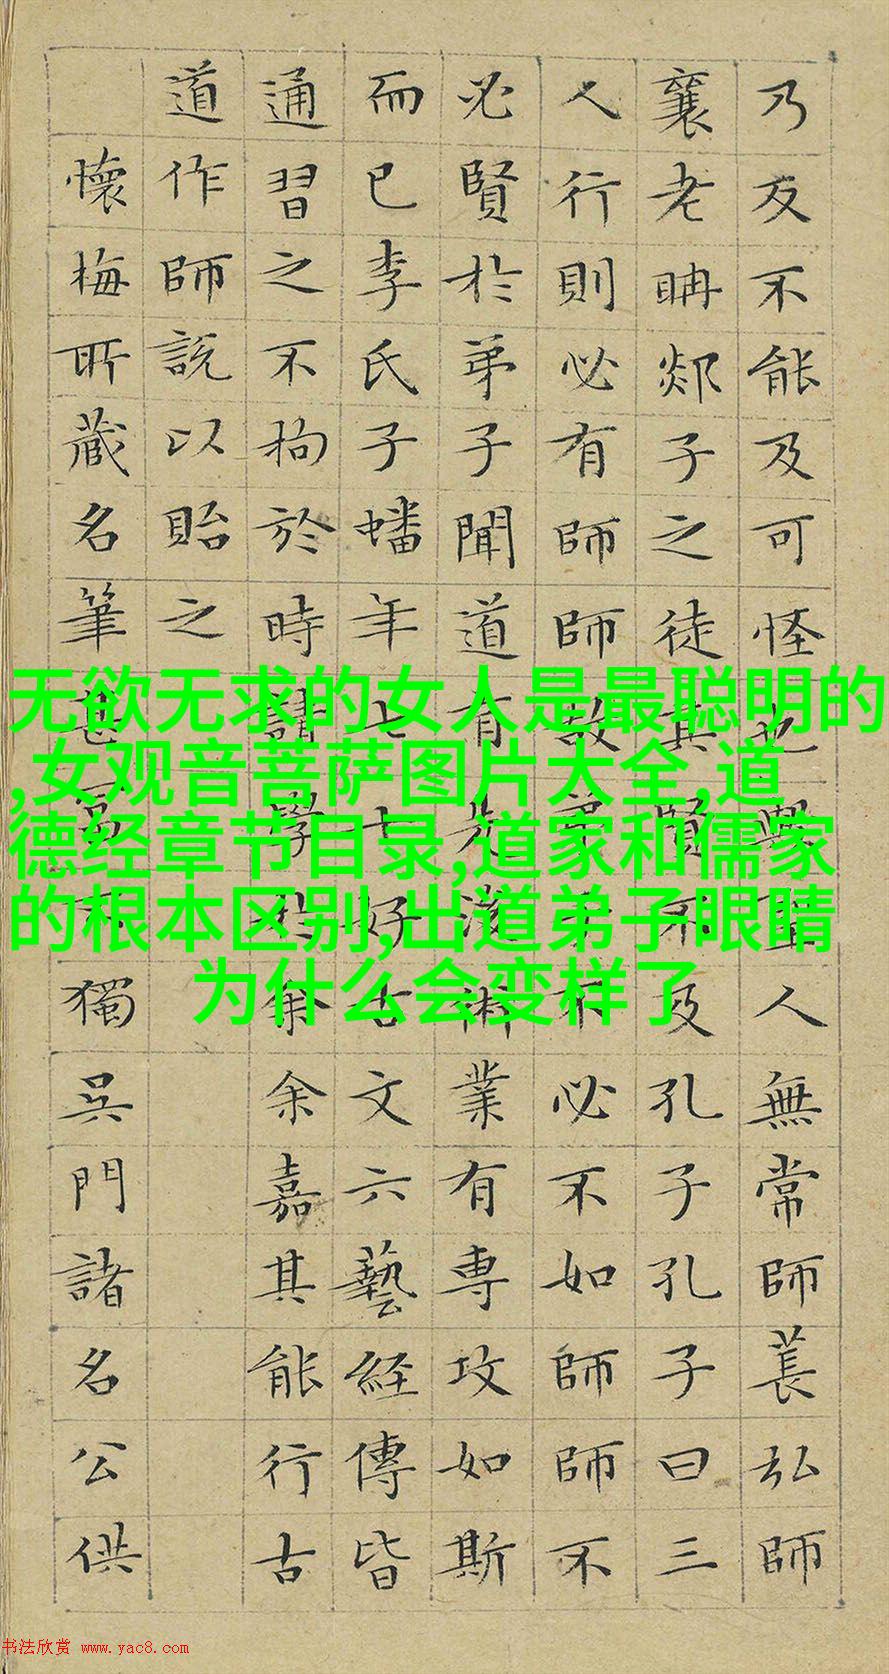 乃反不能及可怪也歟聖人無常師萇弘師
襄老聃郯子之徒其賢不及孔子孔子曰三
人行則必有師師故弟子不必不如師師不
必賢於弟子聞道有先後術業有專攻如斯
而已李氏子蟠年十七好古文六藝經傳皆
通習之不拘於時請學於余余嘉其能行古
道作師說以貽之
懷梅所藏名筆甚富不獨吳門諸名公供
无欲无求的女人是最聪明的
,女观音菩萨图片大全,道
德经章节目录,道家和儒家
的根本区别,出道弟子眼睛
为什么会变样了
书法欣赏 www.yac8.com